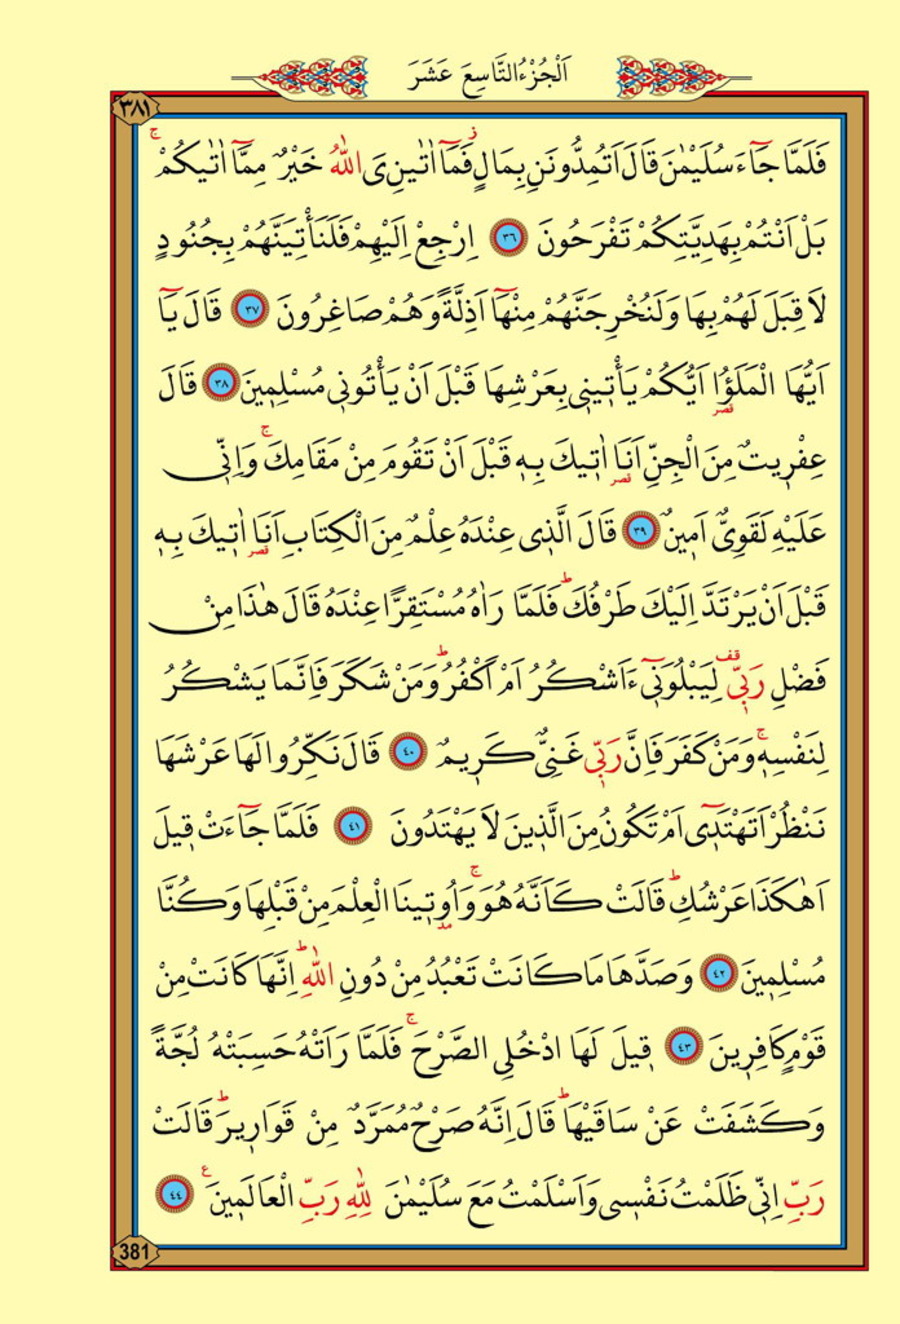 اَلْجُزْءُ التَّاسِعَ عَشَرَ
٣٨١
فَلَمَّا جَآءَ سُلَيْمٰنَ قَالَ اَتُمِدُّونَنِ بِمَالٍ فَمَآ اٰتٰينِيَ اللّٰهُ خَيْرٌ مِمَّآ اٰتٰيكُمْ
بَلْ اَنْتُمْ بِهَدِيَّتِكُمْ تَفْرَحُونَ ٣٦ اِرْجِعْ اِلَيْهِمْ فَلَنَأْتِيَنَّهُمْ بِجُنُودٍ
لَا قِبَلَ لَهُمْ بِهَا وَلَنُخْرِجَنَّهُمْ مِنْهَآ اَذِلَّةً وَهُمْ صَاغِرُونَ ٣٧ قَالَ يَآ
اَيُّهَا الْمَلَؤُا اَيُّكُمْ يَأْتِينِي بِعَرْشِهَا قَبْلَ اَنْ يَأْتُونِي مُسْلِمِينَ ٣٨ قَالَ
عِفْرِيتٌ مِنَ الْجِنِّ اَنَا اٰتِيكَ بِهِ قَبْلَ اَنْ تَقُومَ مِنْ مَقَامِكَ وَاِنِّي
عَلَيْهِ لَقَوِيٌّ اَمِينٌ ٣٩ قَالَ الَّذِي عِنْدَهُ عِلْمٌ مِنَ الْكِتَابِ اَنَا اٰتِيكَ بِهِ
قَبْلَ اَنْ يَرْتَدَّ اِلَيْكَ طَرْفُكَ فَلَمَّا رَاٰهُ مُسْتَقِرًّا عِنْدَهُ قَالَ هٰذَا مِنْ
فَضْلِ رَبِّي لِيَبْلُوَنِيٓ ءَاَشْكُرُ اَمْ اَكْفُرُ وَمَنْ شَكَرَ فَاِنَّمَا يَشْكُرُ
لِنَفْسِهِ وَمَنْ كَفَرَ فَاِنَّ رَبِّي غَنِيٌّ كَرِيمٌ ٤٠ قَالَ نَكِّرُوا لَهَا عَرْشَهَا
نَنْظُرْ اَتَهْتَدِيٓ اَمْ تَكُونُ مِنَ الَّذِينَ لَا يَهْتَدُونَ ٤١ فَلَمَّا جَآءَتْ قِيلَ
اَهٰكَذَا عَرْشُكِ قَالَتْ كَاَنَّهُ هُوَ وَاُوتِينَا الْعِلْمَ مِنْ قَبْلِهَا وَكُنَّا
مُسْلِمِينَ ٤٢ وَصَدَّهَا مَا كَانَتْ تَعْبُدُ مِنْ دُونِ اللّٰهِ اِنَّهَا كَانَتْ مِنْ
قَوْمٍ كَافِرِينَ ٤٣ قِيلَ لَهَا ادْخُلِي الصَّرْحَ فَلَمَّا رَاَتْهُ حَسِبَتْهُ لُجَّةً
وَكَشَفَتْ عَنْ سَاقَيْهَا قَالَ اِنَّهُ صَرْحٌ مُمَرَّدٌ مِنْ قَوَارِيرَ قَالَتْ
رَبِّ اِنِّي ظَلَمْتُ نَفْسِي وَاَسْلَمْتُ مَعَ سُلَيْمٰنَ لِلّٰهِ رَبِّ الْعَالَمِينَ ٤٤
381